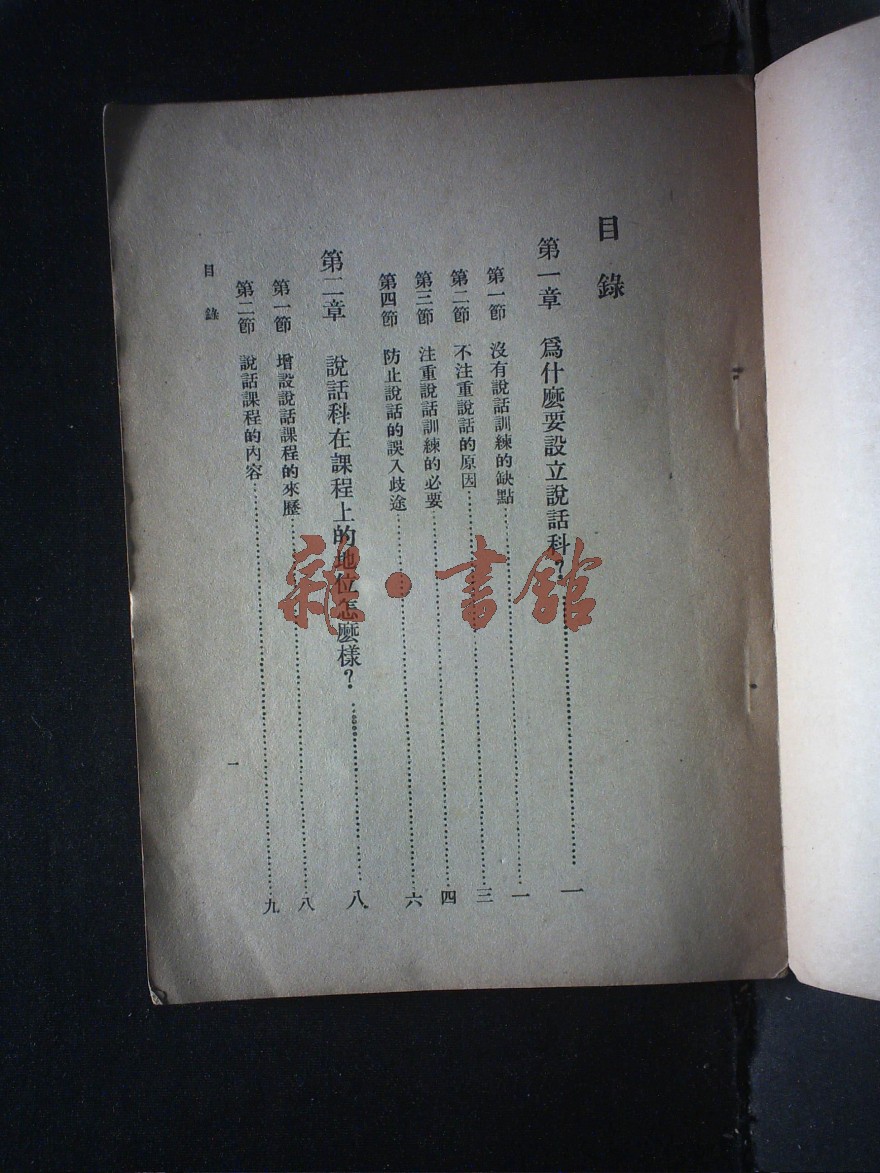 目錄
第一章 爲什麽要設立說話科？……一
第一節 沒有說話訓練的缺點……一
第二節 不注重說話的原因……三
第三節 注重說話訓練的必要……四
第四節 防止說話的誤入歧途……六
第二章 說話科在課程上的地位怎麽樣？……八
第一節 增設說話課程的來歷……八
第二節 說話課程的內容……九
目錄
一
雜·書館